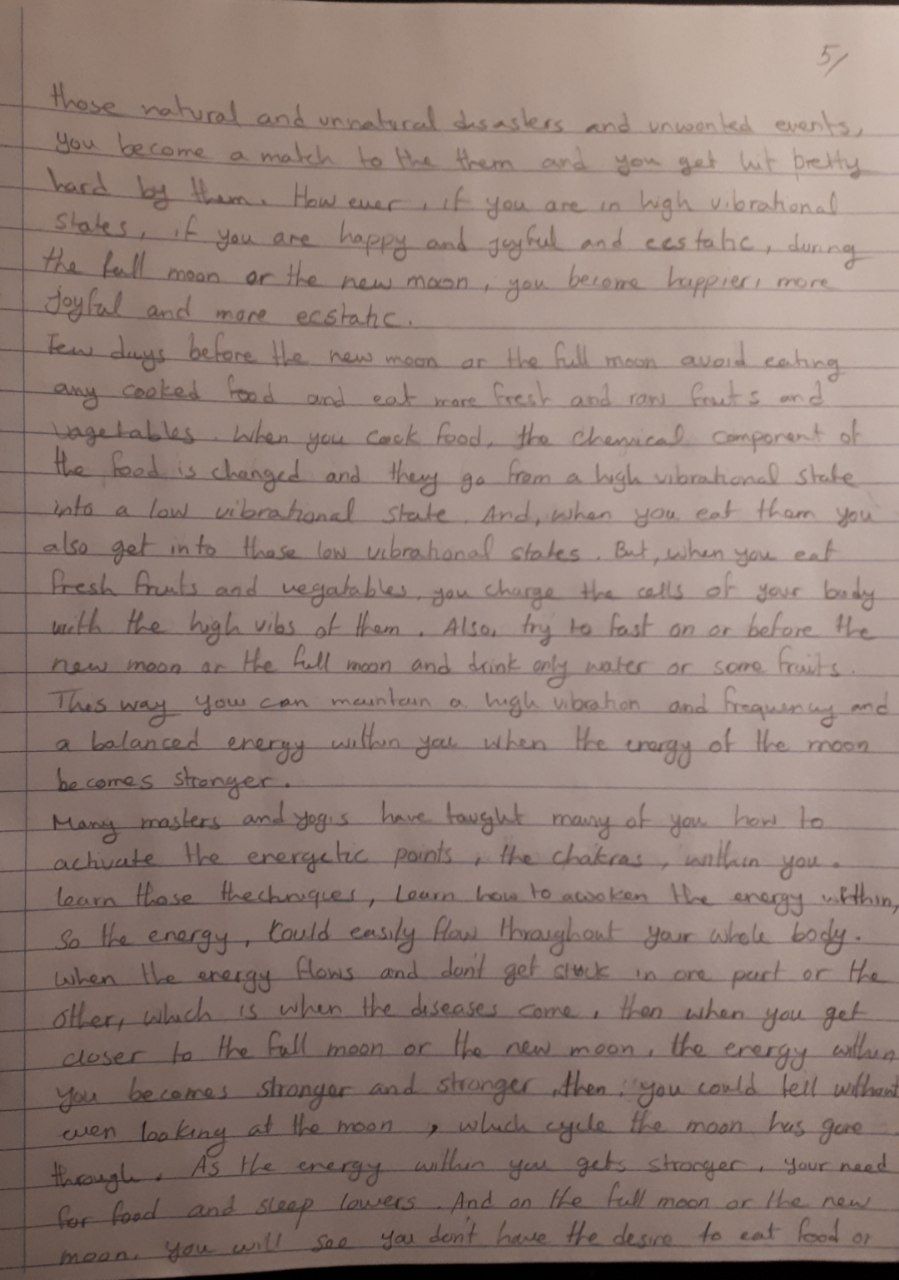 5/
those natural and unnatural disasters and unwanted events,
you become a match to the them and you get hit pretty
hard by them. However, if you are in high vibrational
states, if you are happy and joyful and ecstatic, during
the full moon or the new moon, you become happier, more
joyful and more ecstatic.
Few days before the new moon or the full moon avoid eating
any cooked food and eat more fresh and raw fruits and
vagetables. When you cook food, the chemical component of
the food is changed and they go from a high vibrational state
into a low vibrational state. And, when you eat them you
also get into those low vibrational states. But, when you eat
fresh fruits and vegatables, you charge the cells of your body
with the high vibs of them. Also, try to fast on or before the
new moon or the full moon and drink only water or some fruits.
This way you can maintain a high vibration and frequency and
a balanced energy within you when the energy of the moon
becomes stronger.
Many masters and yogis have taught many of you how to
activate the energetic points, the chakras, within you.
learn those thechniques, learn how to awoken the energy within,
so the energy, could easily flow throughout your whole body.
when the energy flows and don't get stuck in one part or the
other, which is when the diseases come, then when you get
closer to the full moon or the new moon, the energy within
you becomes stronger and stronger, then, you could tell without
even looking at the moon, which cycle the moon has gone
through. As the energy within you gets stronger, your need
for food and sleep lowers. And on the full moon or the new
moon, you will see you don't have the desire to eat food or